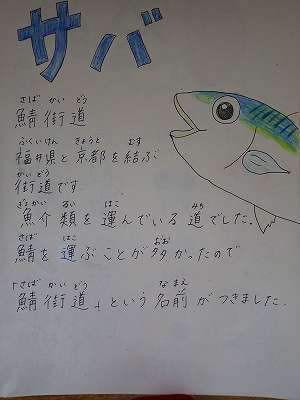 サバ
さば かい どう
鯖街道
ふくいけん きょうと むす
福井県と京都を結ぶ
かい どう
街道です
ぎょかい るい はこ みち
魚介類を運んでいる道でした.
さば はこ おお
鯖を運ぶことが多かったので
さば かい どう なまえ
「鯖街道」という名前がつきました.